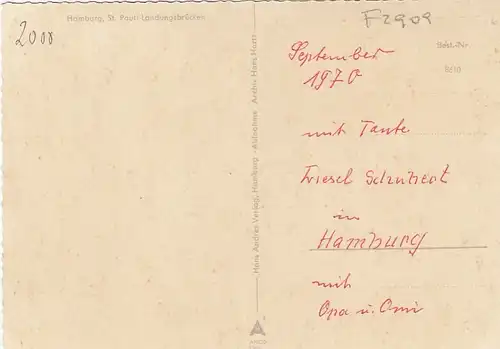 Hamburg, St. Pauli Landungsbrücken
2000
F2909
Best.-Nr.
September
1970
mit Tante
Friesel Schubert
in
Hamburg
mit
Opa u. Omi
Hans Andres Verlag, Hamburg - Aufnahme Archiv Hans Hartz